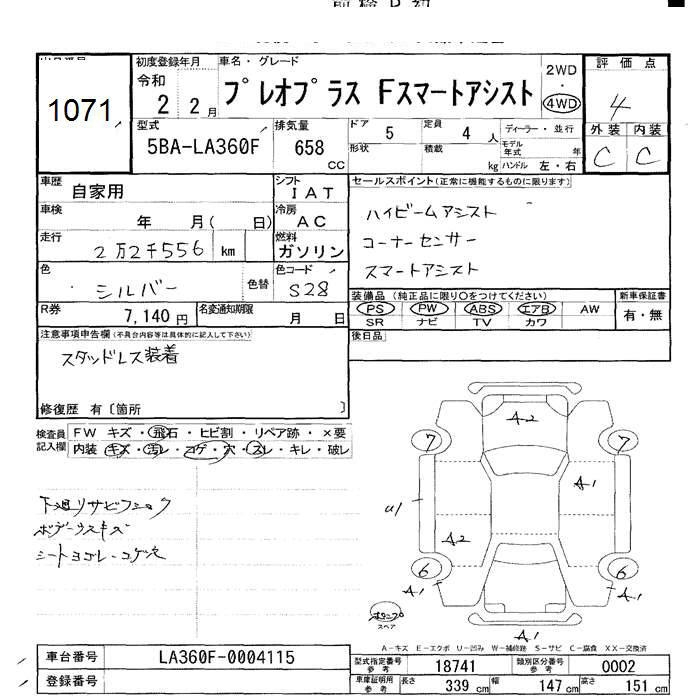 初度登録年月 車名・グレード 2WD 評価点
1071 令和 2 2月 プレオプラス Fスマートアシスト ・ 4WD 4
型式 排気量 ドア 5 定員 4人 ディーラー・並行 外装 内装
5BA-LA360F 658 CC 形状 積載 kg モデル年式 年 C C
ハンドル 左・右
車歴 自家用 シフト IAT セールスポイント(正常に機能するものに限ります)
車検 年 月( 日) 冷房 AC ハイビームアシスト
走行 2万2千556 km 燃料 ガソリン コーナーセンサー
色 シルバー 色替 色コード S28 スマートアシスト
R券 7,140円 名変通知期限 月 日 装備品(純正品に限り○をつけてください) 新車保証書
PS PW ABS エアB AW 有・無
SR ナビ TV カワ
注意事項申告欄(不具合内容等は具体的に記入して下さい) 後日品
スタッドレス装着
修復歴 有〔箇所 〕
検査員記入欄 FW キズ・飛石・ヒビ割・リペア跡・×要
内装・キズ・汚レ・コゲ・穴・スレ・キレ・破レ
下廻リサビフェロク
ボデーウスキズ
シートヨゴレ・コゲ穴
A2
7 7
A1
U1
A2
6 6
A1 A1
スペア
A1
A-キズ E-エクボ U-凹み W-補修跡 S-サビ C-腐食 XX-交換済
車台番号 LA360F-0004115 型式指定番号 参考 18741 類別区分番号 参考 0002
登録番号 車庫証明用 参考 長さ 339cm 幅 147cm 高さ 151cm